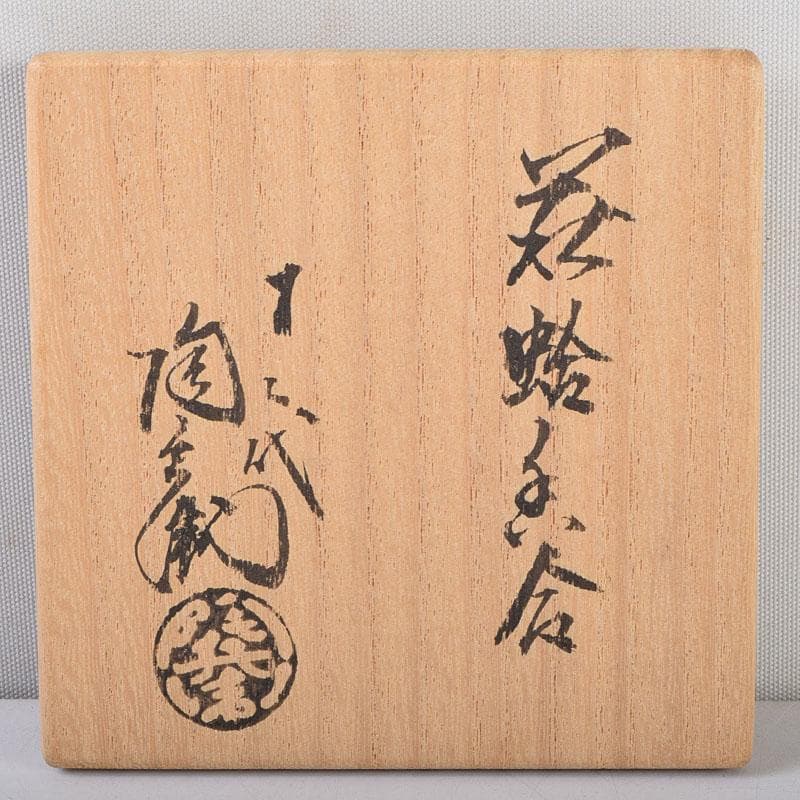 萩蛤香合
十二代
陶兵衛